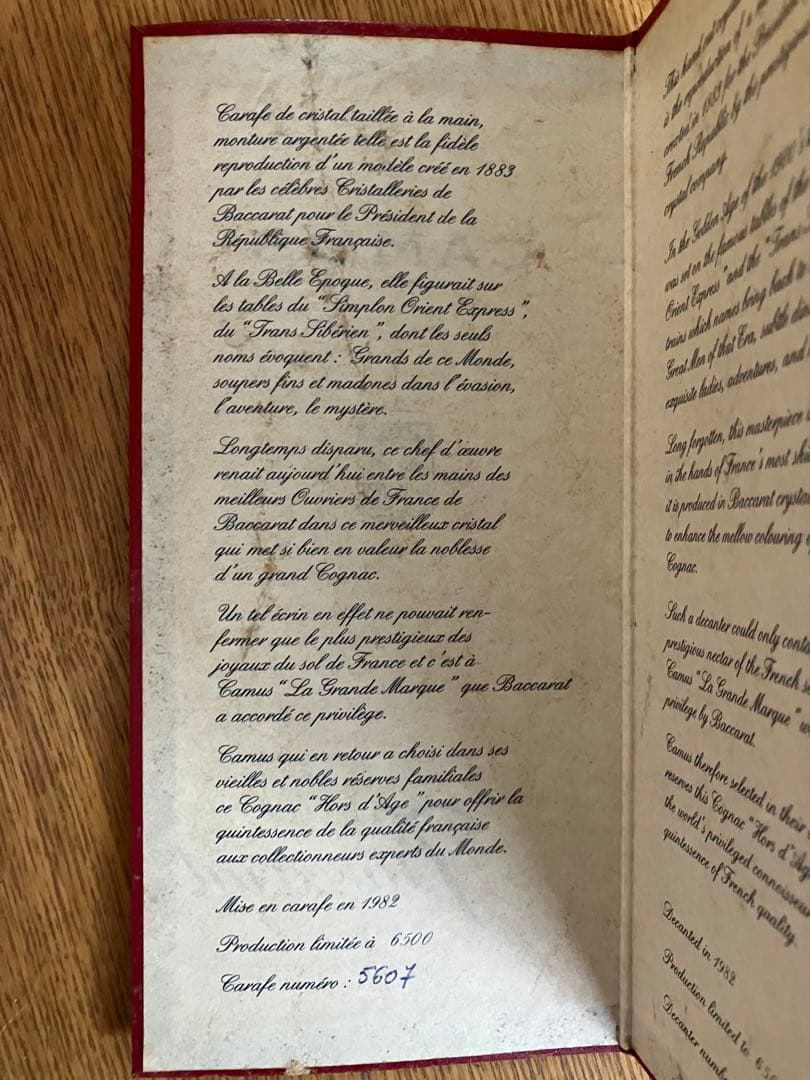 Carafe de cristal taillée à la main,
monture argentée telle est la fidèle
reproduction d'un modèle créé en 1883
par les célèbres Cristalleries de
Baccarat pour le Président de la
République Française.
A la Belle Epoque, elle figurait sur
les tables du "Simplon Orient Express",
du "Trans Sibérien", dont les seuls
noms évoquent : Grands de ce Monde,
soupers fins et madones dans l'évasion,
l'aventure, le mystère.
Longtemps disparu, ce chef d'œuvre
renait aujourd'hui entre les mains des
meilleurs Ouvriers de France de
Baccarat dans ce merveilleux cristal
qui met si bien en valeur la noblesse
d'un grand Cognac.
Un tel écrin en effet ne pouvait ren-
fermer que le plus prestigieux des
joyaux du sol de France et c'est à
Camus "La Grande Marque" que Baccarat
a accordé ce privilège.
Camus qui en retour a choisi dans ses
vieilles et nobles réserves familiales
ce Cognac "Hors d'Age" pour offrir la
quintessence de la qualité française
aux collectionneurs experts du Monde.
Mise en carafe en 1982
Production limitée à 6500
Carafe numéro : 5607
This
is the reproduction of a
created in 1883 for the President
French Republic by the prestigious
crystal company.
In the Golden Age of the 1900's
was set on the famous tables of the
Orient Express" and the "Trans
trains which names bring back to
Great Men of that Era, subtle
exquisite ladies, adventures, and
Long forgotten, this masterpiece
in the hands of France's most
it is produced in Baccarat crystal
to enhance the mellow colouring
Cognac.
Such a decanter could only
prestigious nectar of the French
Camus "La Grande Marque"
privilege by Baccarat.
Camus therefore selected in their
reserves this Cognac "Hors d'Age
the world's privileged
quintessence of French quality.
Decanted in 1982
Production limited to 650
Decanter